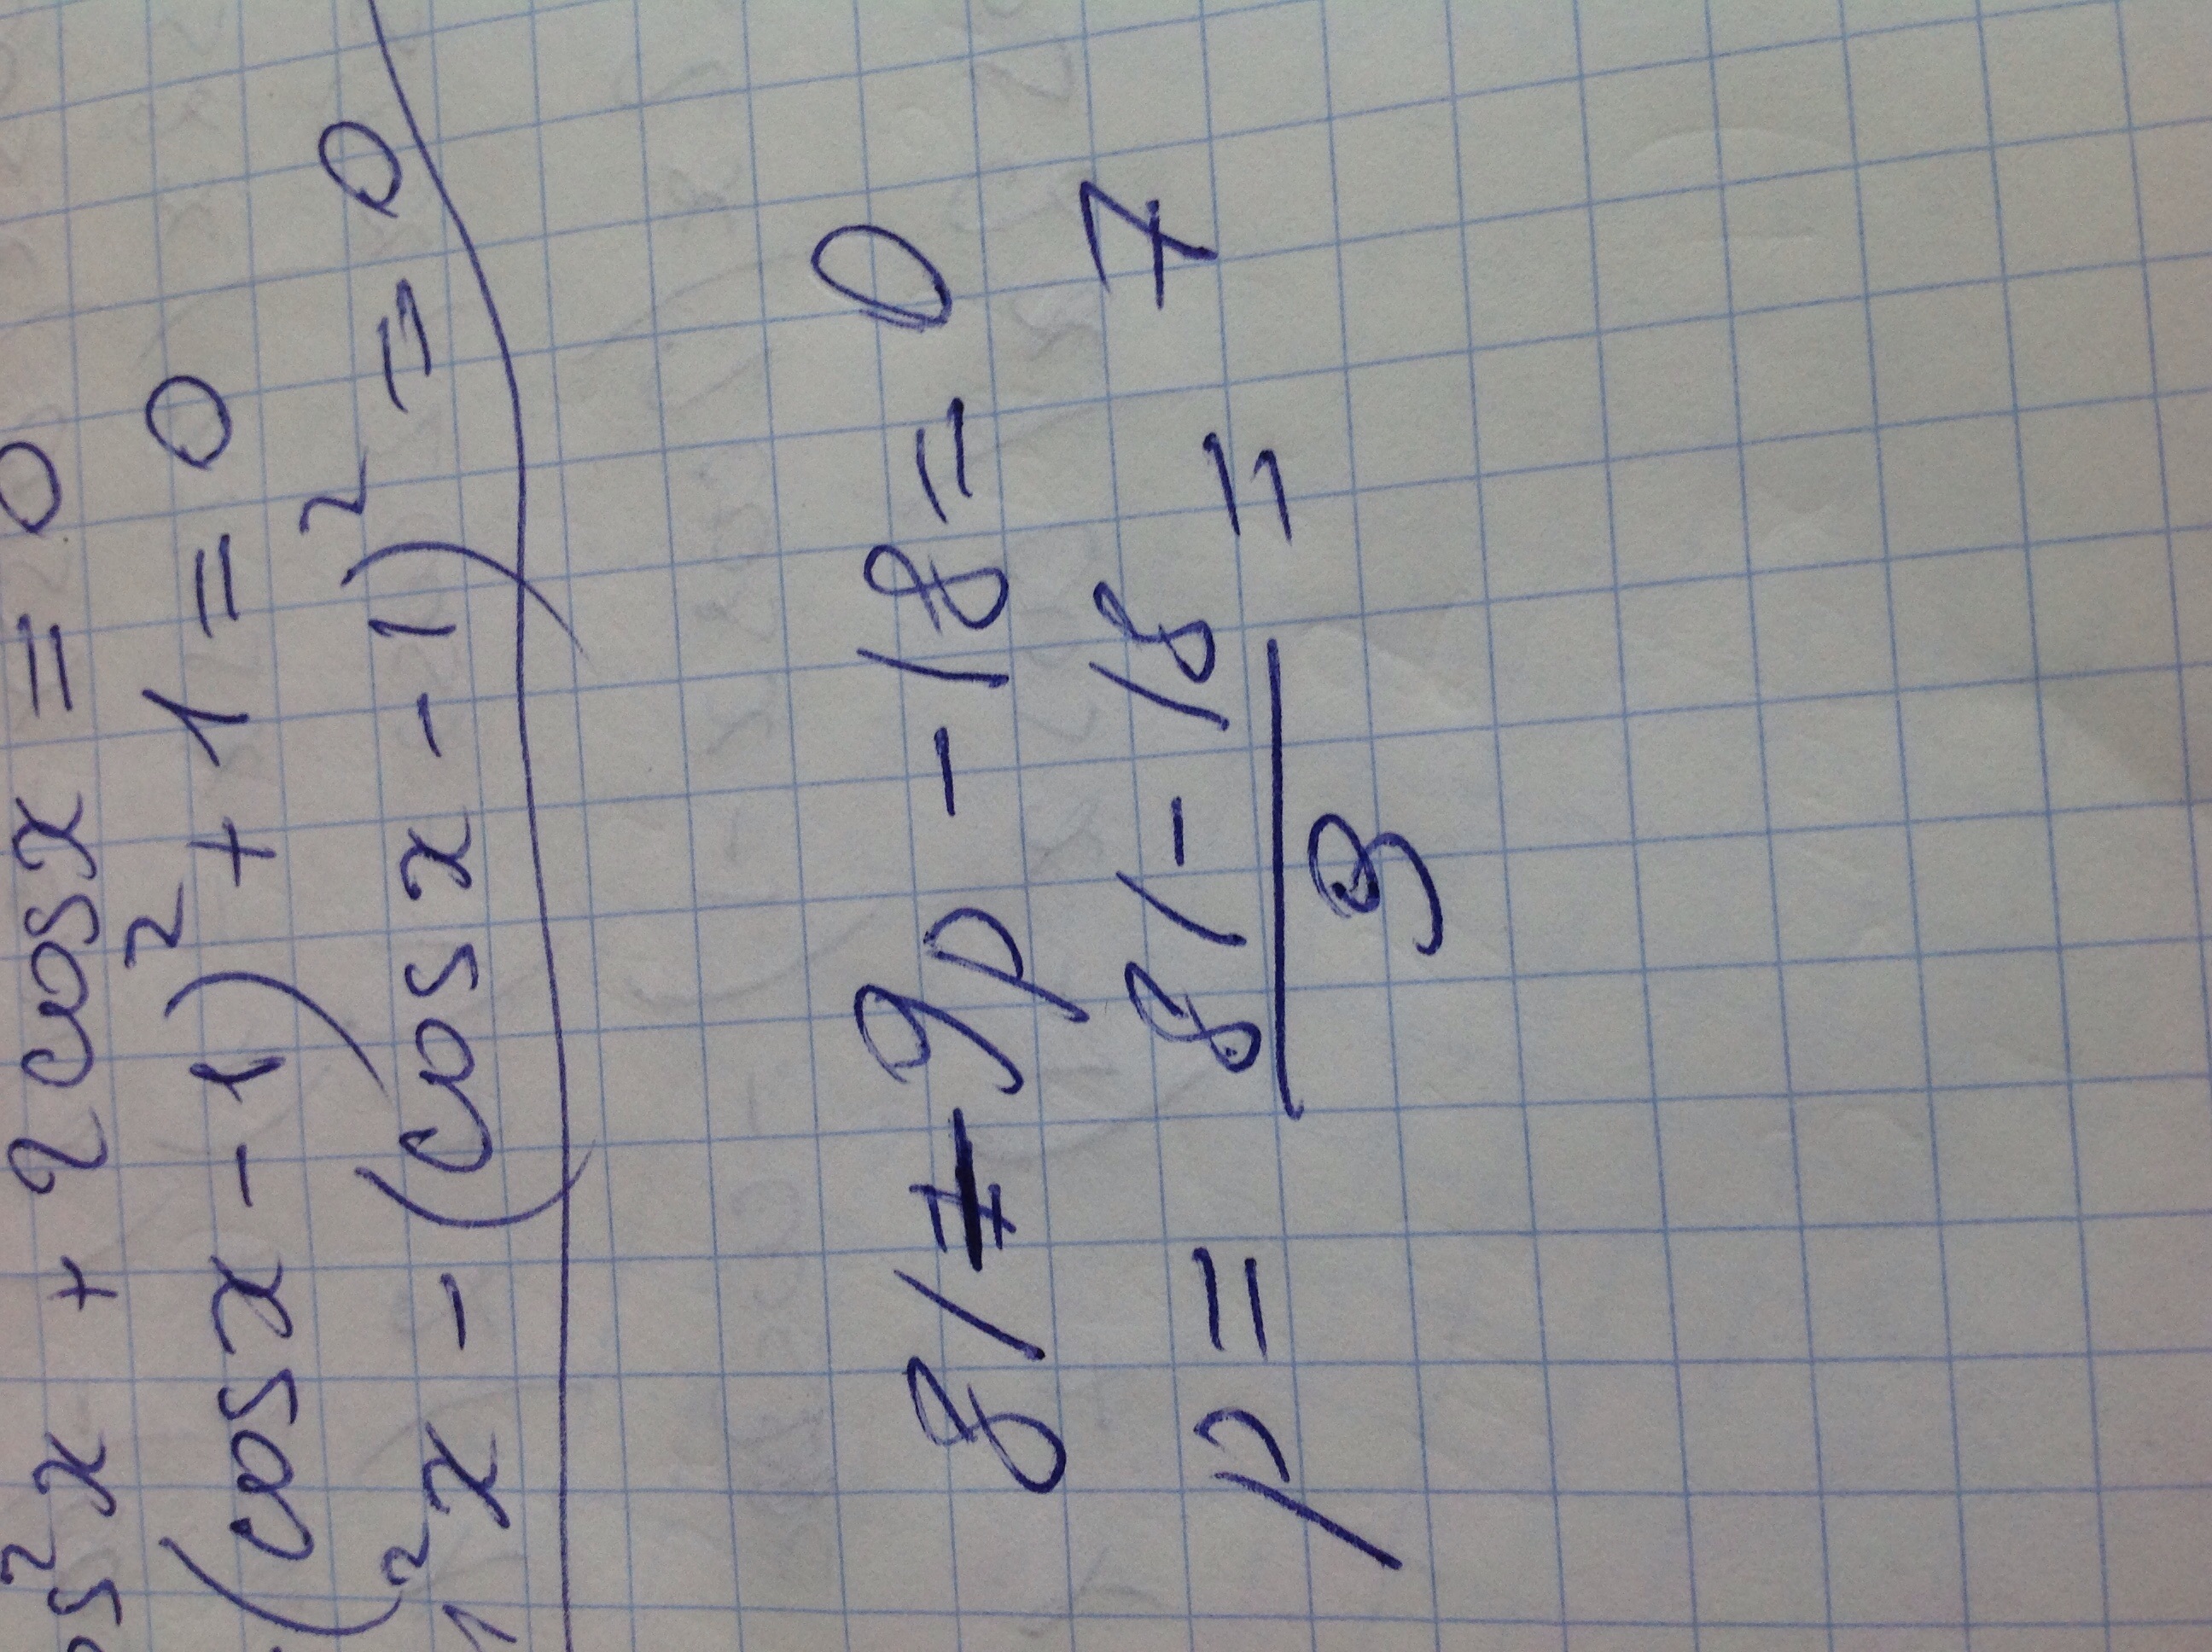 s²x + 2 cos x = 0
(cos x - 1)² + 1 = 0
²x - (cos x - 1)² = 0
81 - 9p - 18 = 0
p = 81 - 18 / 9 = 7